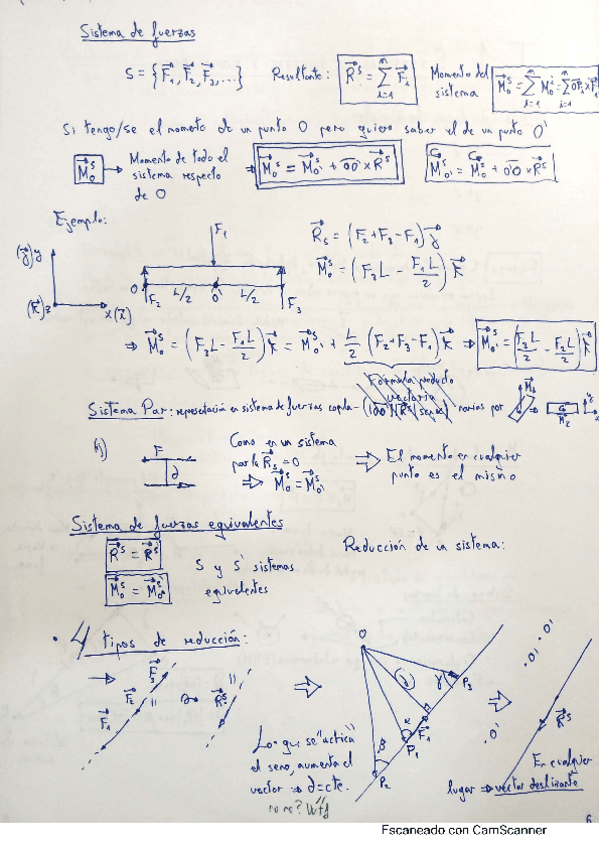 Sistema de fuerzas
S = {F₁, F₂, F₃, ...} Resultante: R^S = Σ F_i Momento del sistema M₀^S = Σ M₀^i = Σ OP_i × F_i
Si tengo/se el momento de un punto O pero quiero saber el de un punto O'
M₀^S → Momento de todo el sistema respecto de O ⇒ M₀^S = M₀'^S + OO' × R^S M₀'^S = M₀^S + O'O × R^S
Ejemplo:
(j) y
(k) z
x (i)
F₁
O L/2 O' L/2
F₂
F₃
R_S = (F₂ + F₃ - F₁) j
M₀^S = (F₃L - F₁L/2) k
⇒ M₀^S = (F₃L - F₁L/2) k = M₀'^S + L/2 (F₂ + F₃ - F₁) k ⇒ M₀'^S = (F₃L/2 - F₂L/2) k
Fórmula producto vectorial
Sistema Par: representación en sistema de fuerzas
F
d
Como en un sistema par la R_S = 0
⇒ M₀^S = M₀'^S
⇒ El momento en cualquier punto es el mismo
Sistema de fuerzas equivalentes
R^S = R^S'
M₀^S = M₀^S'
S y S' sistemas equivalentes
Reducción de un sistema:
· 4 tipos de reducción:
F₁ F₂ F₃
R^S
O
d
α β γ
P₁ P₂ P₃
F₁
Lo que se "achica" el seno, aumenta el vector ⇒ d = cte.
no no? Wtf
O' O' O'
R^S
En cualquier lugar ⇒ vector deslizante
6
Escaneado con CamScanner